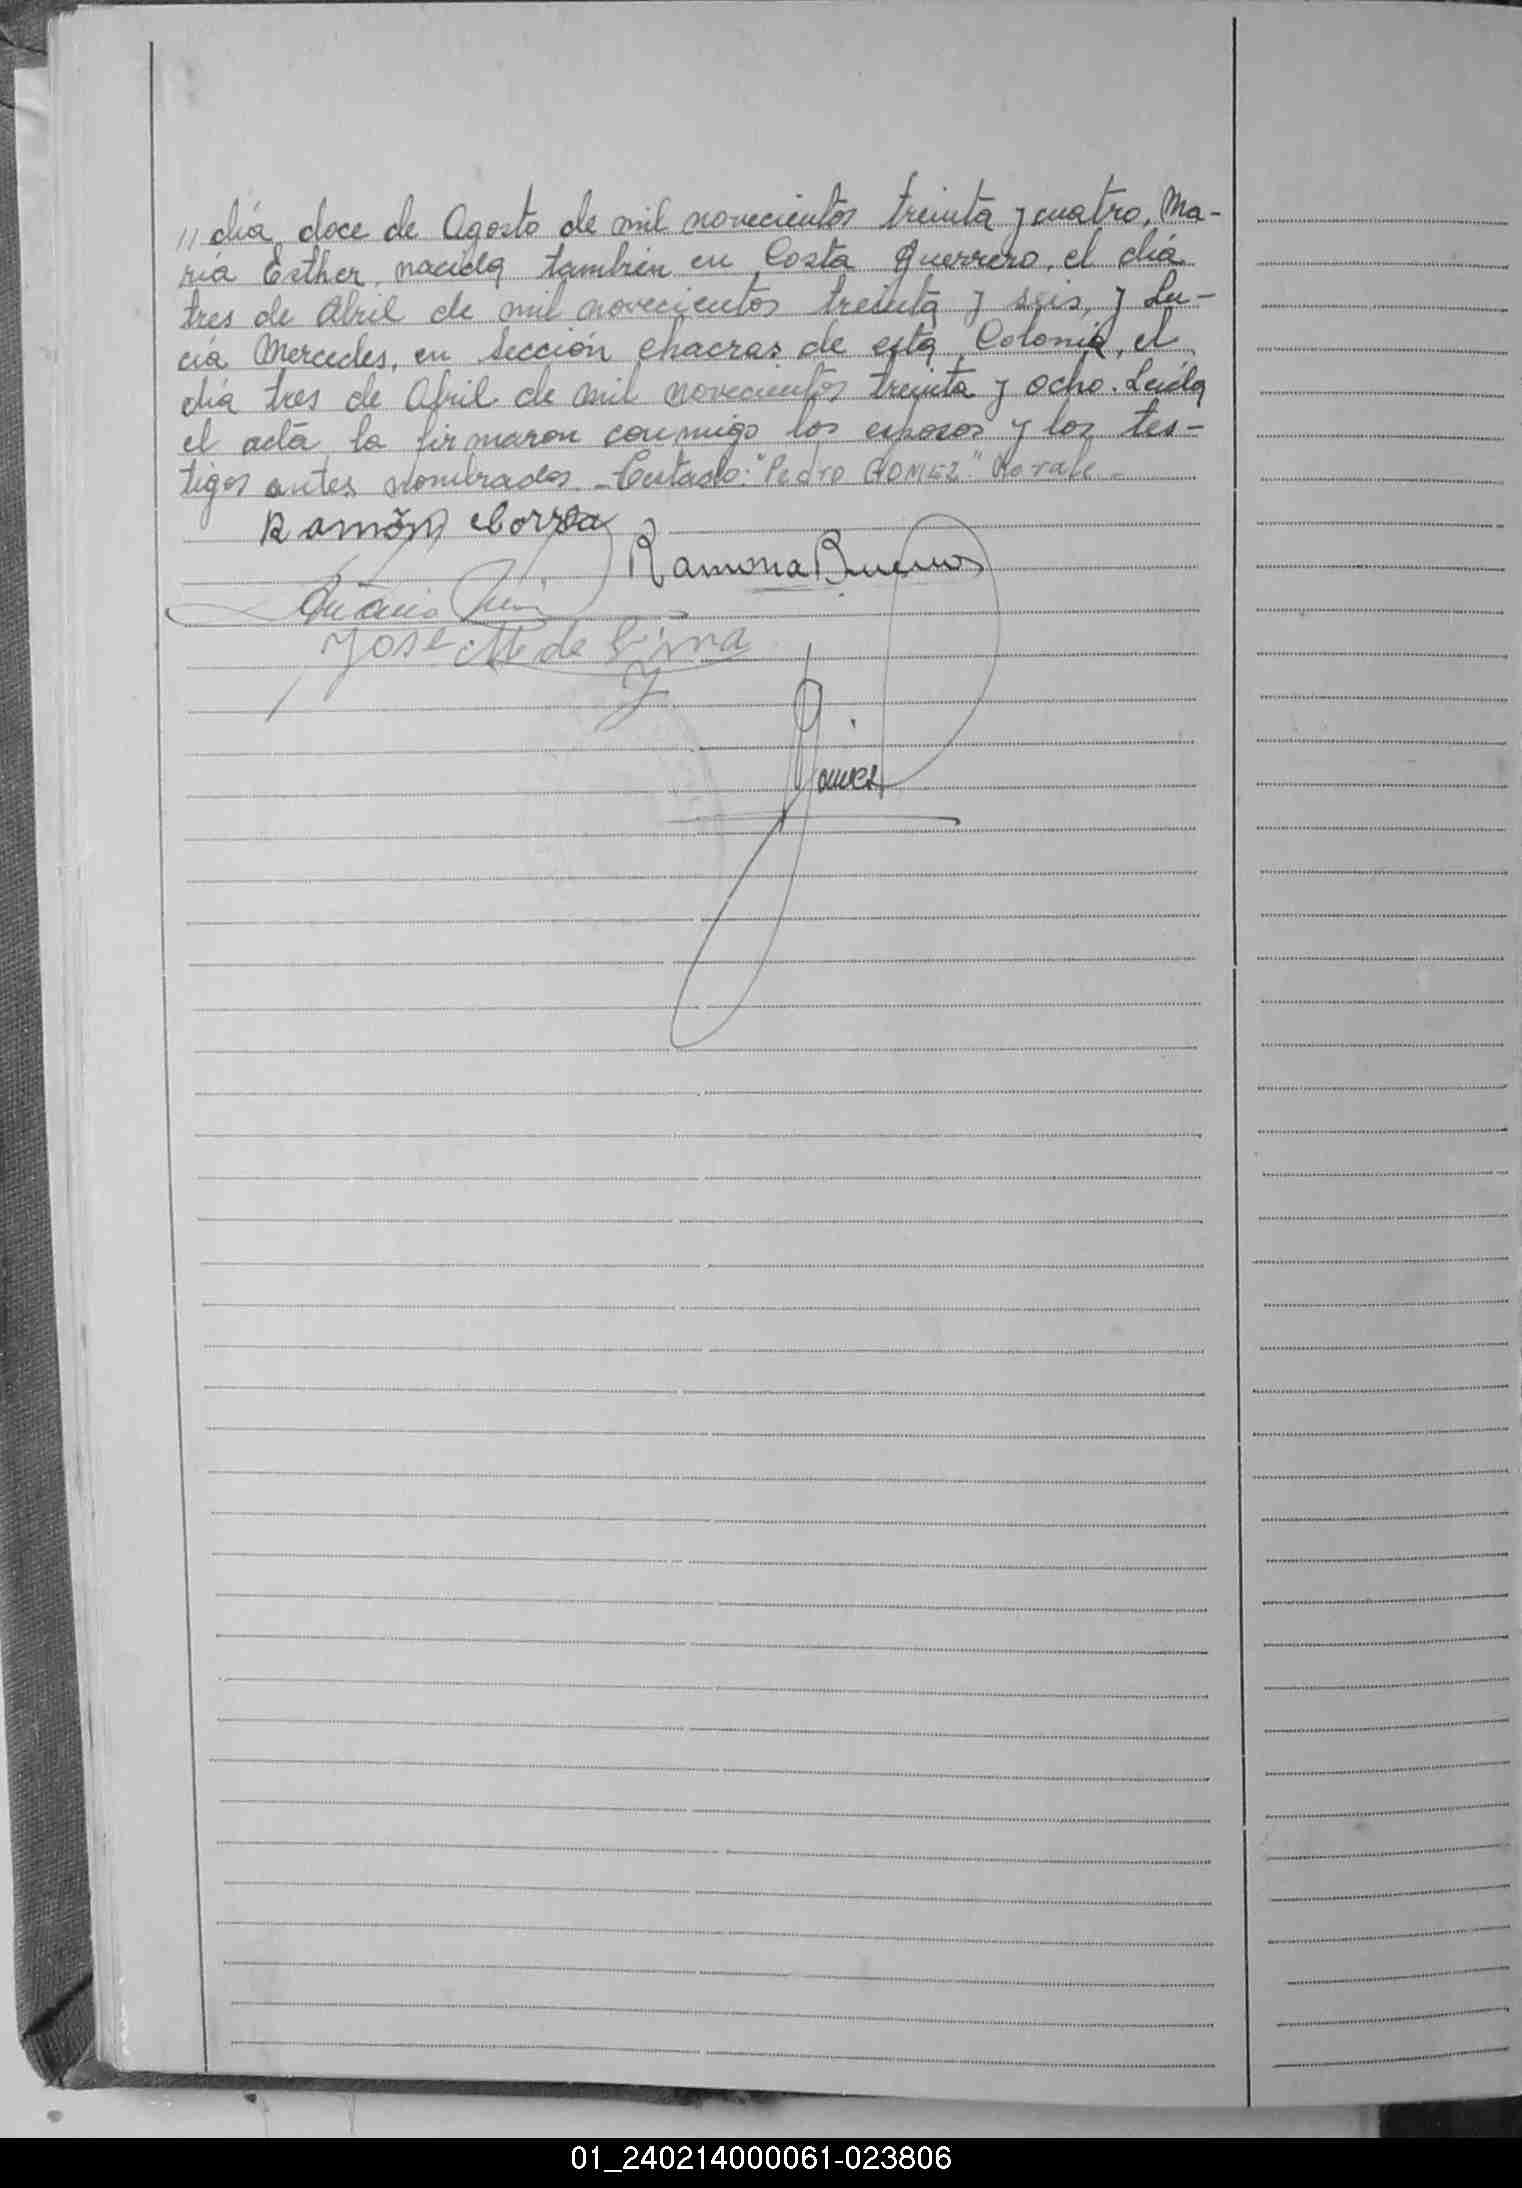 // día, doce de Agosto de mil novecientos treinta y cuatro, Ma-
ría Esther, nacida también en Costa Guerrero, el día
tres de Abril de mil novecientos treinta y seis, y Lu-
cía Mercedes, en Sección chacras de esta Colonia, el
día tres de Abril de mil novecientos treinta y ocho. Leída
el acta la firmaron conmigo los esposos y los tes-
tigos antes nombrados.- Testado: "Pedro GOMEZ" No vale.-
Ramón Borja
Ramona Bueno
José M. de Lima
01_240214000061-023806